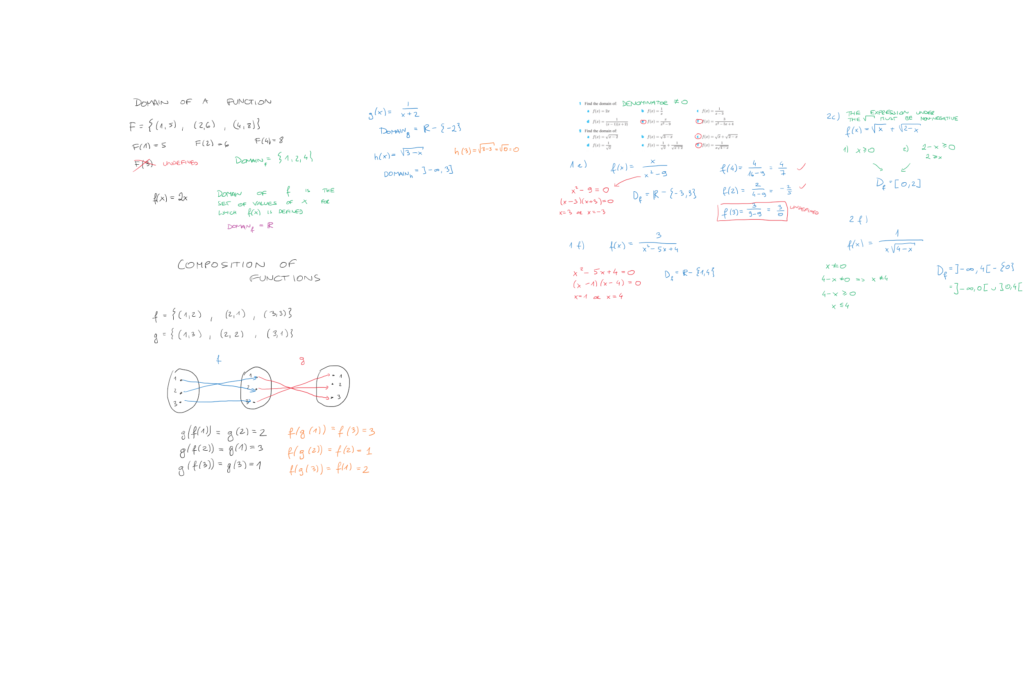 DOMAIN OF A FUNCTION
F = {(1,5) , (2,6) , (4,8)}
F(1) = 5 F(2) = 6 F(4) = 8
F(3) UNDEFINED DOMAIN_f = {1,2,4}
f(x) = 2x
DOMAIN OF f IS THE
SET OF VALUES OF x FOR
WHICH f(x) IS DEFINED
DOMAIN_f = ℝ
g(x) = 1/(x+2)
DOMAIN_g = ℝ - {-2}
h(x) = √(3-x) h(3) = √(3-3) = √0 = 0
DOMAIN_h = ]-∞, 3]
COMPOSITION OF
FUNCTIONS
f = {(1,2) , (2,1) , (3,3)}
g = {(1,3) , (2,2) , (3,1)}
f g
1 1 1
2 2 2
3 3 3
g(f(1)) = g(2) = 2 f(g(1)) = f(3) = 3
g(f(2)) = g(1) = 3 f(g(2)) = f(2) = 1
g(f(3)) = g(3) = 1 f(g(3)) = f(1) = 2
1 Find the domain of: DENOMINATOR ≠ 0
2 Find the domain of:
1 e) f(x) = x/(x²-9)
x² - 9 = 0
(x-3)(x+3) = 0
x = 3 or x = -3
D_f = ℝ - {-3,3}
f(4) = 4/(16-9) = 4/7 ✓
f(2) = 2/(4-9) = -2/5 ✓
f(3) = 3/(9-9) = 3/0 UNDEFINED
1 f) f(x) = 3/(x²-5x+4)
x² - 5x + 4 = 0
(x-1)(x-4) = 0
x = 1 or x = 4
D_f = ℝ - {1,4}
2c) THE EXPRESSION UNDER
THE √ MUST BE NONNEGATIVE
f(x) = √x + √(2-x)
1) x ≥ 0 2 - x ≥ 0
2 ≥ x
D_f = [0,2]
2 f)
f(x) = 1/(x√(4-x))
x ≠ 0
4-x ≠ 0 x ≠ 4
4-x ≥ 0
x ≤ 4
D_f = ]-∞,4[ - {0}
= ]-∞,0[ ∪ ]0,4[